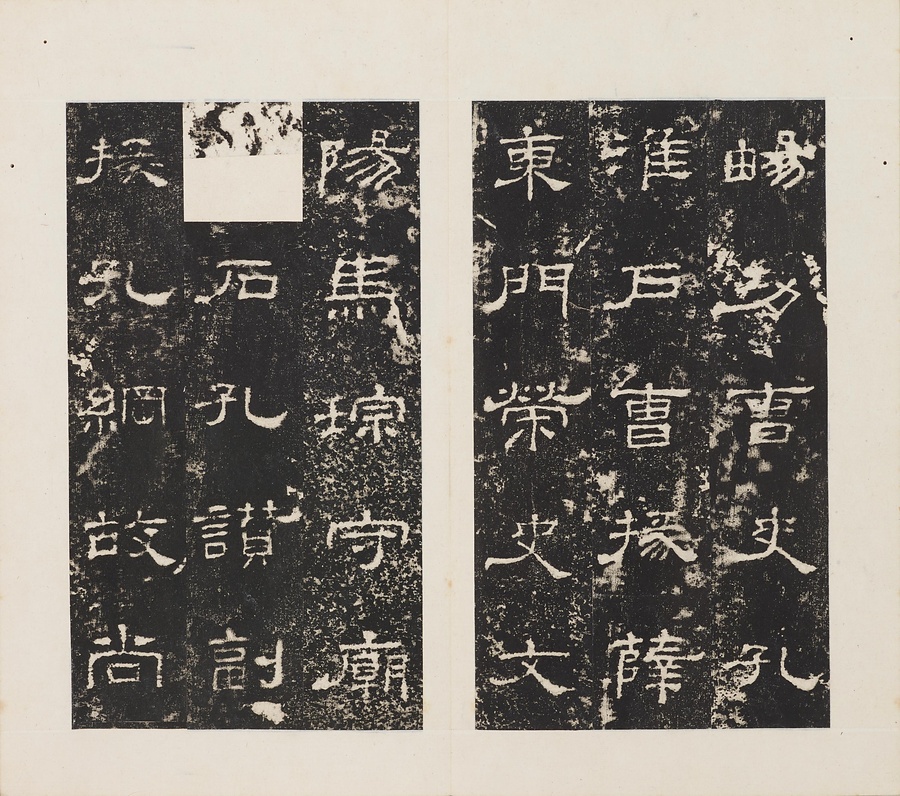 畼功曹史孔
淮戶曹掾薛
東門榮史文
陽馬琮守廟
石孔讃副
掾孔綱故尚